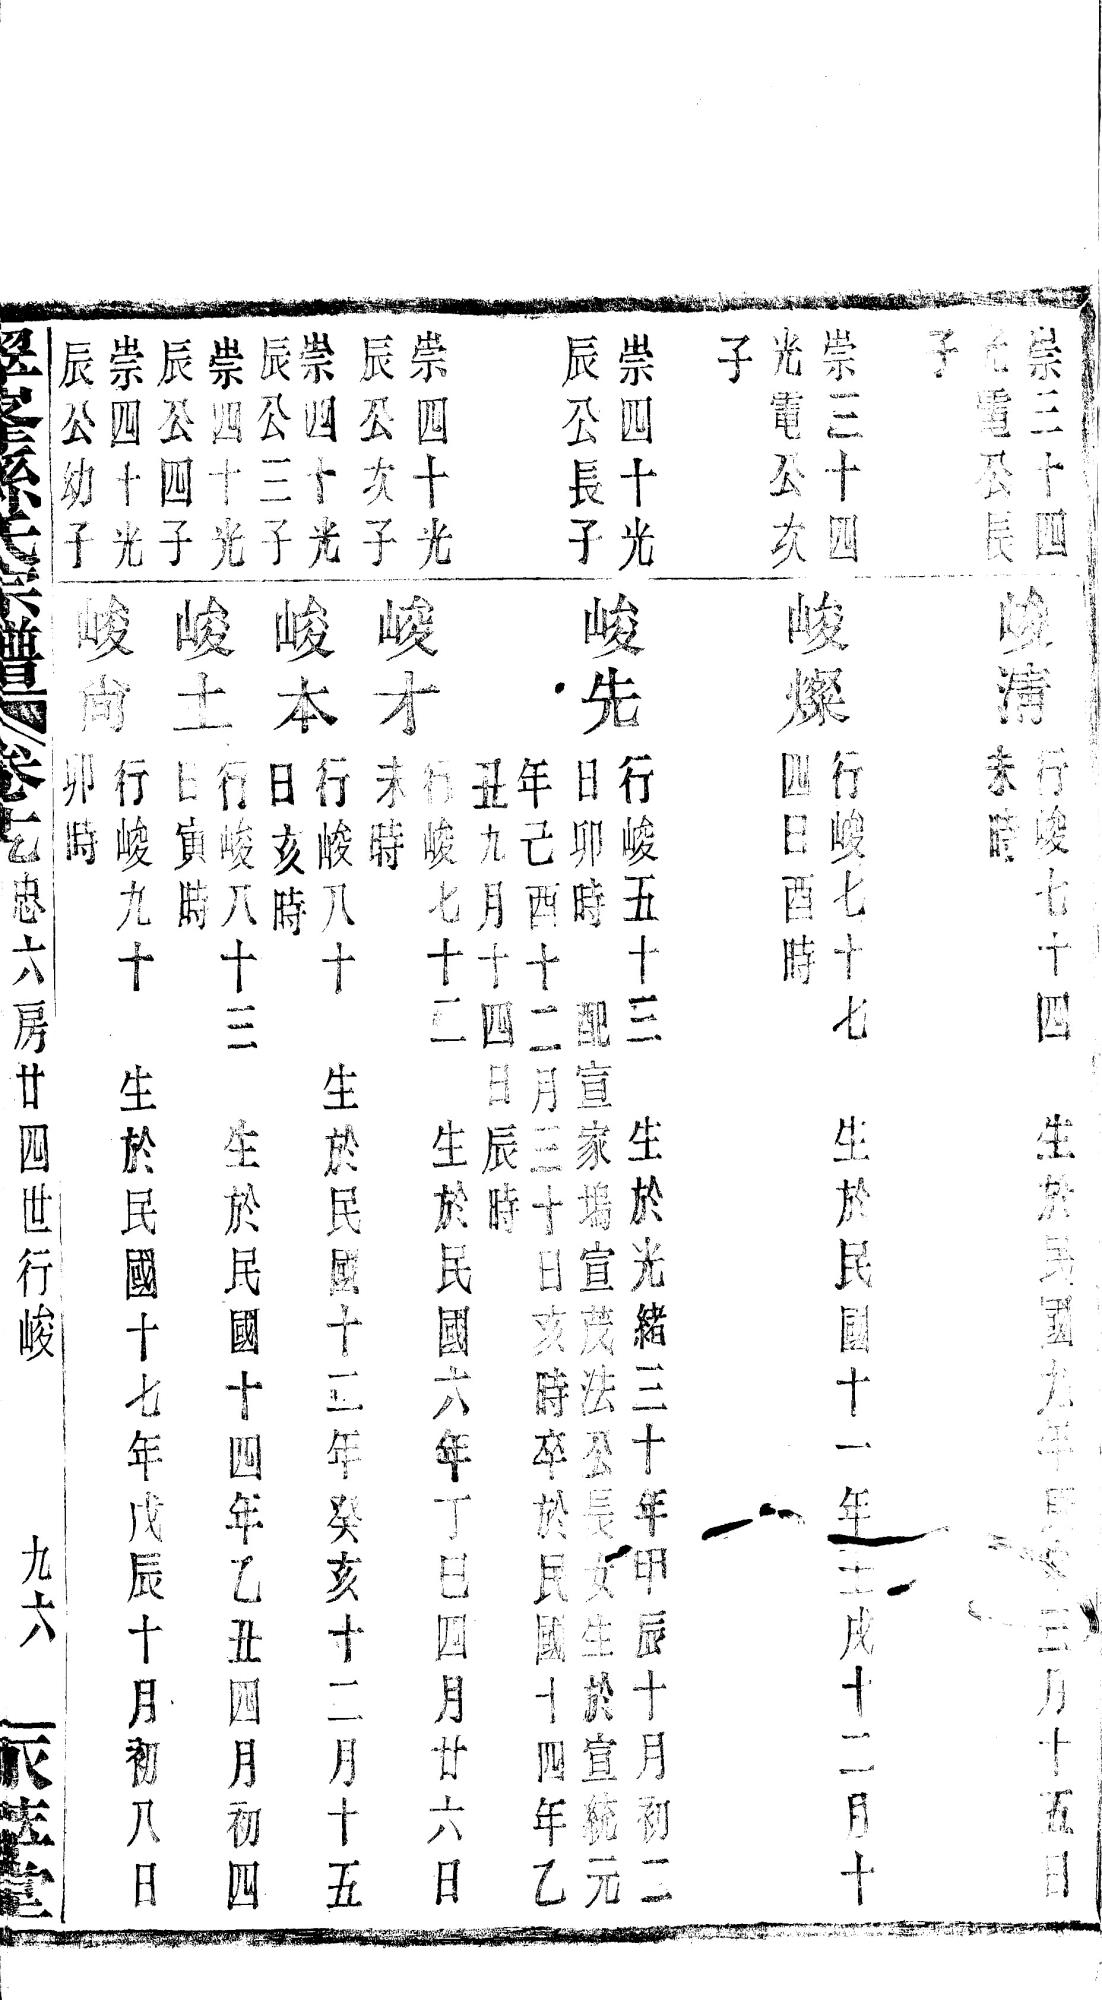 崇三十四
光電公長
子
峻清
行峻七十四 生於民國九年庚申三月十五日
未時
崇三十四
光電公次
子
峻燦
行峻七十七 生於民國十一年壬戌十二月十
四日酉時
崇四十光
辰公長子
峻先
行峻五十三 生於光緒三十年甲辰十月初二
日卯時 配宣家塢宣茂法公長女生於宣統元
年己酉十二月三十日亥時卒於民國十四年乙
丑九月十四日辰時
崇四十光
辰公次子
峻才
行峻七十二 生於民國六年丁巳四月廿六日
未時
崇四十光
辰公三子
峻本
行峻八十 生於民國十二年癸亥十二月十五
日亥時
崇四十光
辰公四子
峻土
行峻八十三 生於民國十四年乙丑四月初四
日寅時
崇四十光
辰公幼子
峻尚
行峻九十 生於民國十七年戊辰十月初八日
卯時
孫氏宗譜 卷七乙忠六房廿四世行峻 九六